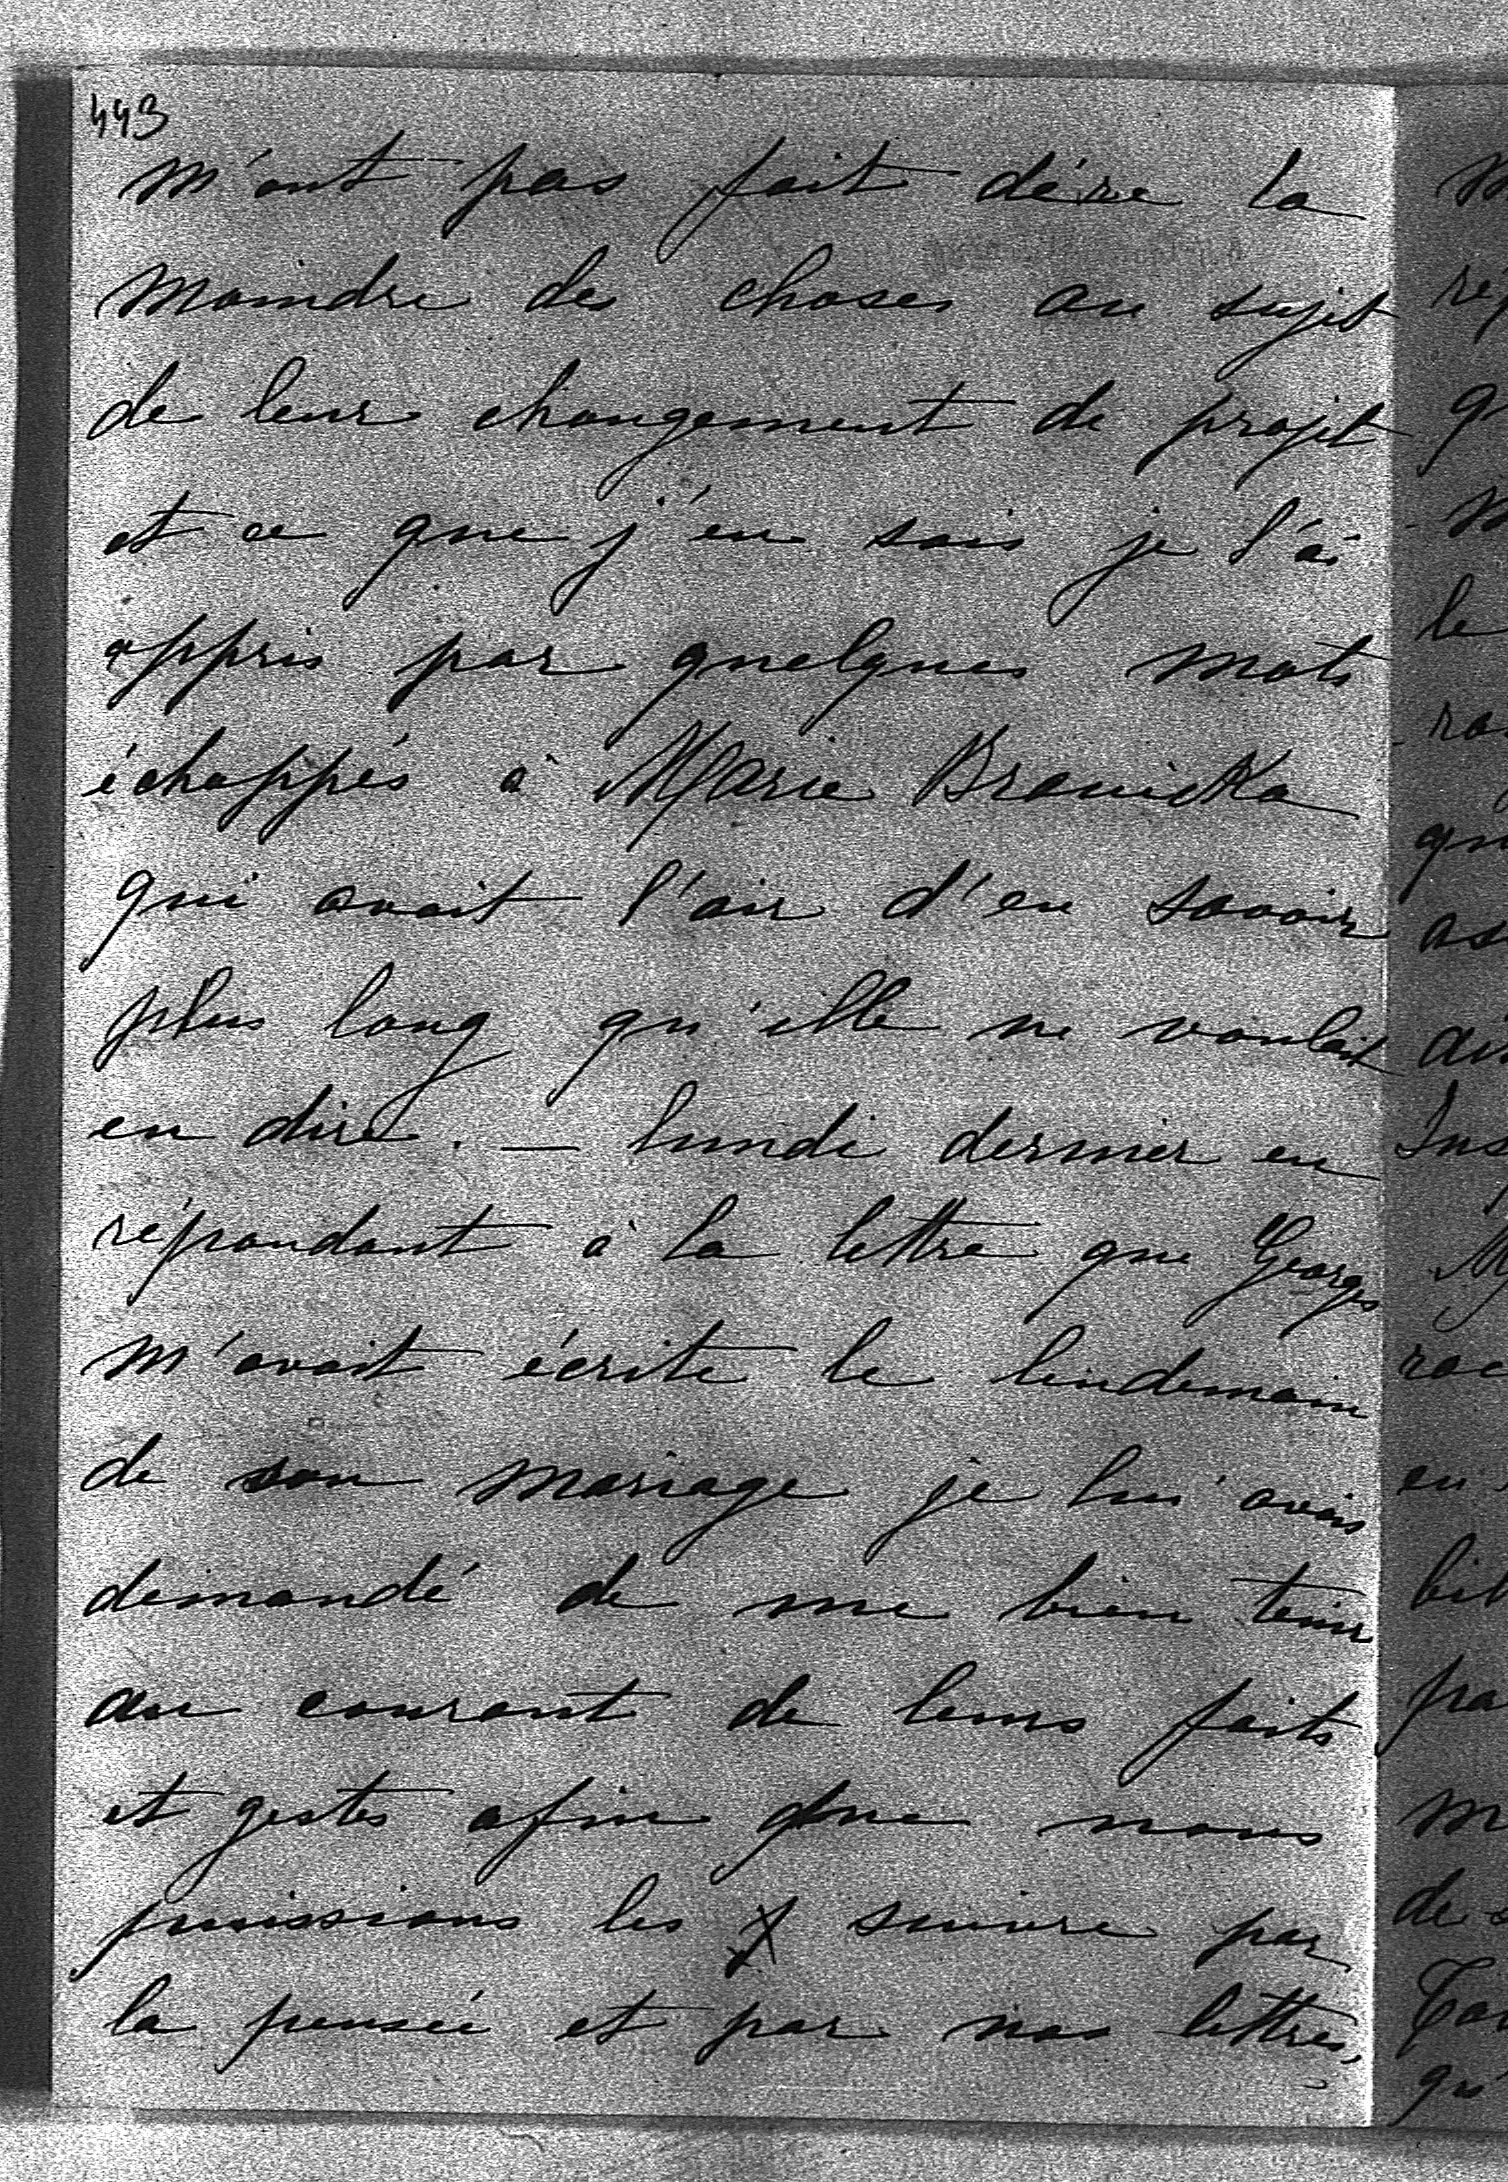 443
m'ont pas fait dé're la
moindre des choses au sujet
de leur changement de projet
et ce que j'en sais je l'ai
appris par quelques mots
échappés à Marie Branicka
qui avait l'air d'en savoir
plus long qu'elle ne voulait
en dire. — lundi dernier en
répondant à la lettre que Georges
m'avait écrite le lendemain
de son mariage je lui avais
demandé de me bien tenir
au courant de leurs faits
et gestes afin que nous
puissions les suivre par
la pensée et par nos lettres,